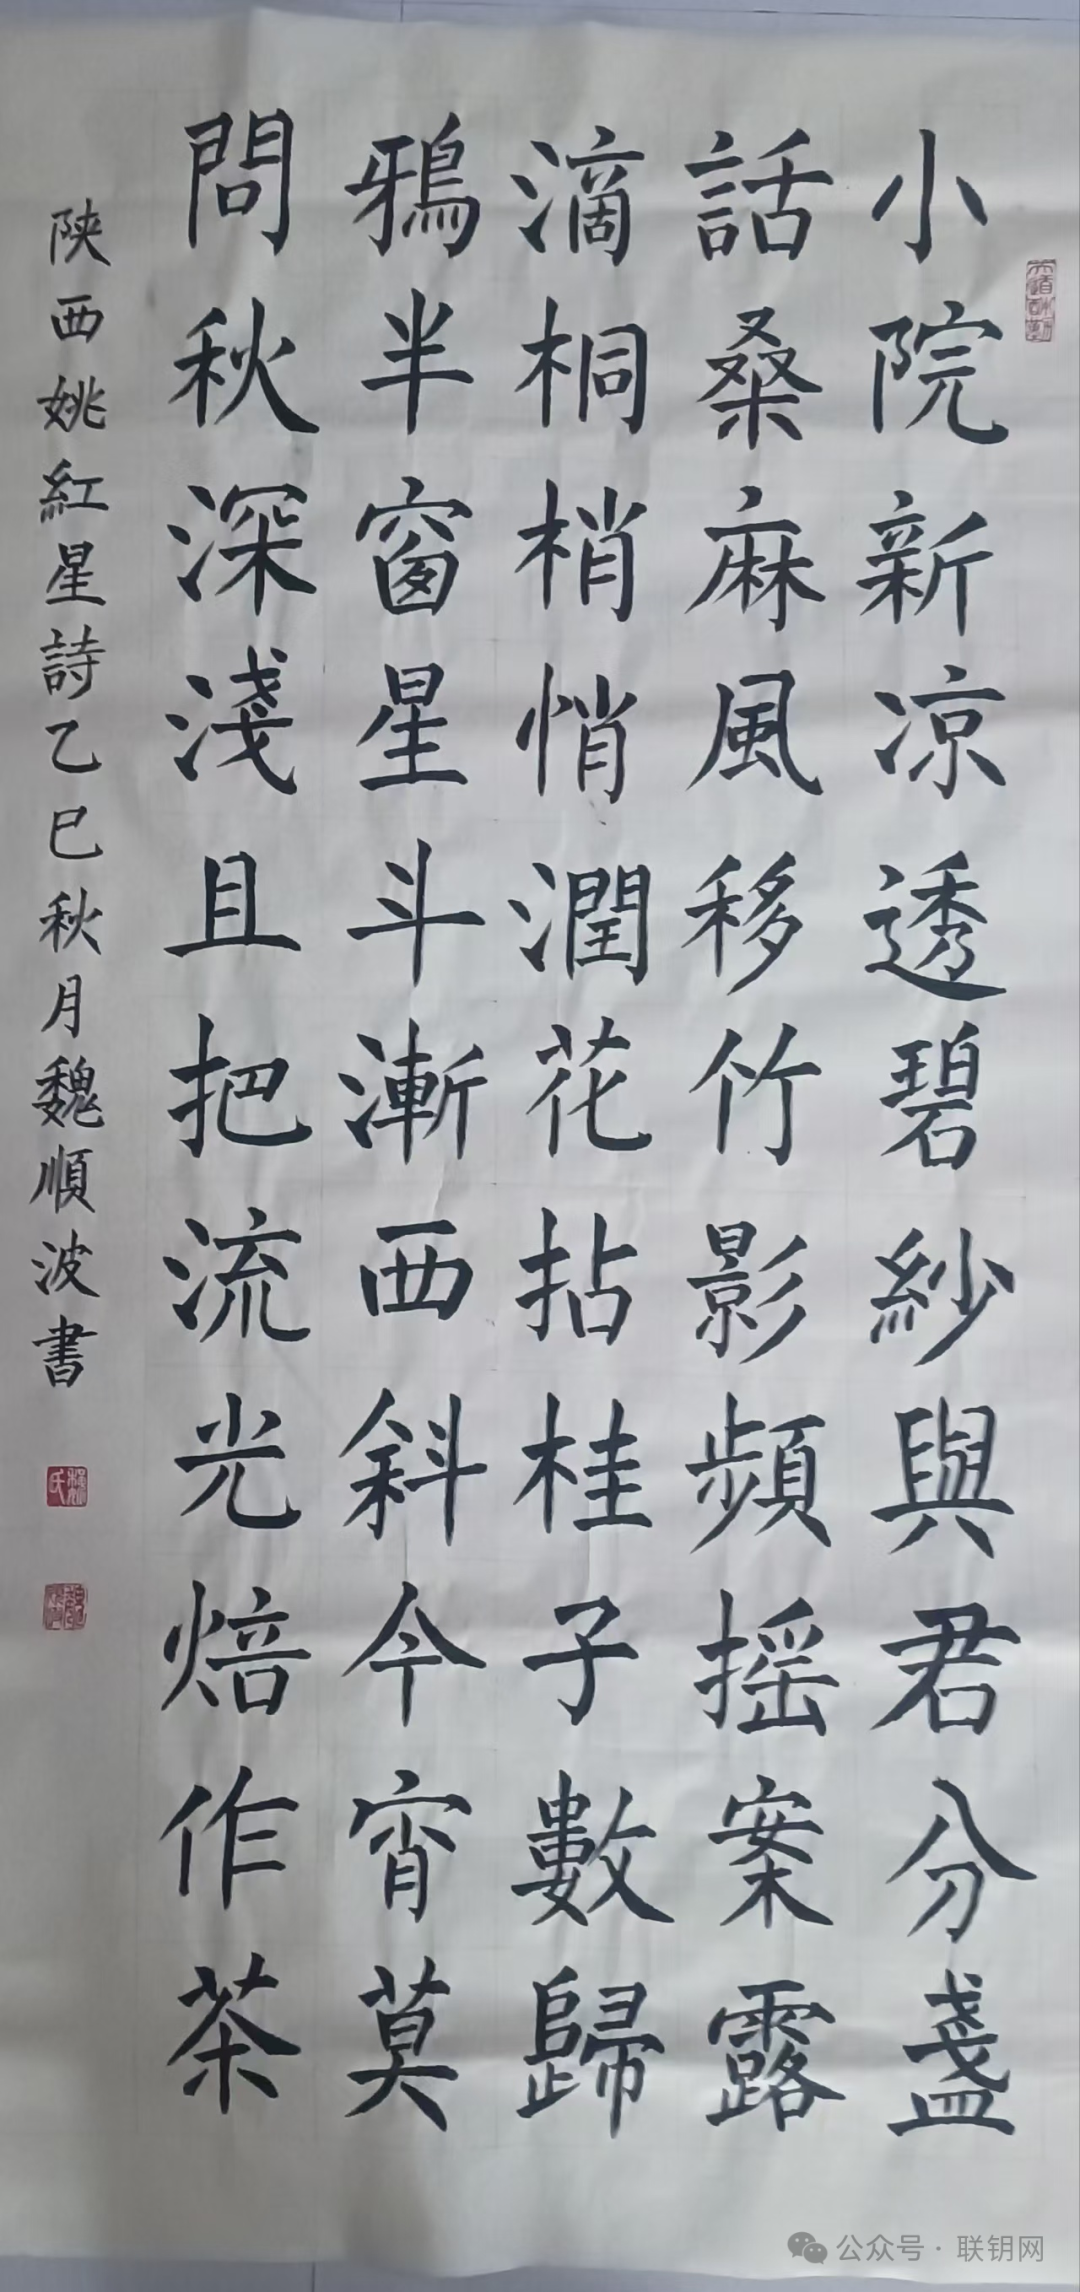 小院新凉透碧紗與君分盞
話桑麻風移竹影頻摇案露
滴桐梢悄潤花拈桂子數歸
鴉半窗星斗漸西斜今宵莫
問秋深淺且把流光焙作茶
陝西姚紅星詩乙巳秋月魏順波書
公众号·联钥网